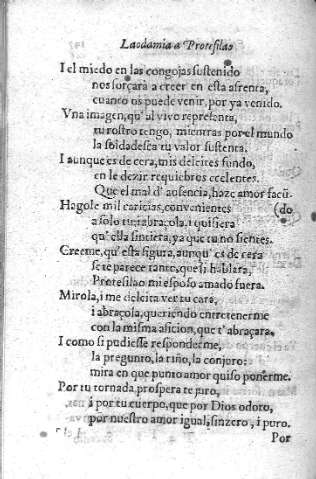 Laodamia a Protesilao
I el miedo en las congojas sustenido
nos forçará a creer en esta afrenta,
cuanto os puede venir, por ya venido.
Vna imagen, qu' al vivo representa,
tu rostro tengo, mientras por el mundo
la soldadesca tu valor sustenta.
I aunque es de cera, mis deleites fundo,
en le dezir requiebros ecelentes.
Que el mal d' ausencia, haze amor facũ-
Hagole mil caricias, convenientes (do
a solo tu: abraçola, i quisiera
qu' ella sintiera, ya que tu no sientes.
Creeme, qu' esta figura, aunqu' es de cera
se te parece tanto, que si hablara,
Protesilao mi esposo amado fuera.
Mirola, i me deleita ver tu cara,
i abraçola, queriendo entretenerme
con la misma aficion, que t' abraçara.
I como si pudiesse responderme,
la pregunto, la riño, la conjuro:
mira en que punto amor quiso ponerme.
Por tu tornada prospera te juro,
i por tu cuerpo, que por Dios adoro,
por nuestro amor igual, sinzero, i puro.
Por